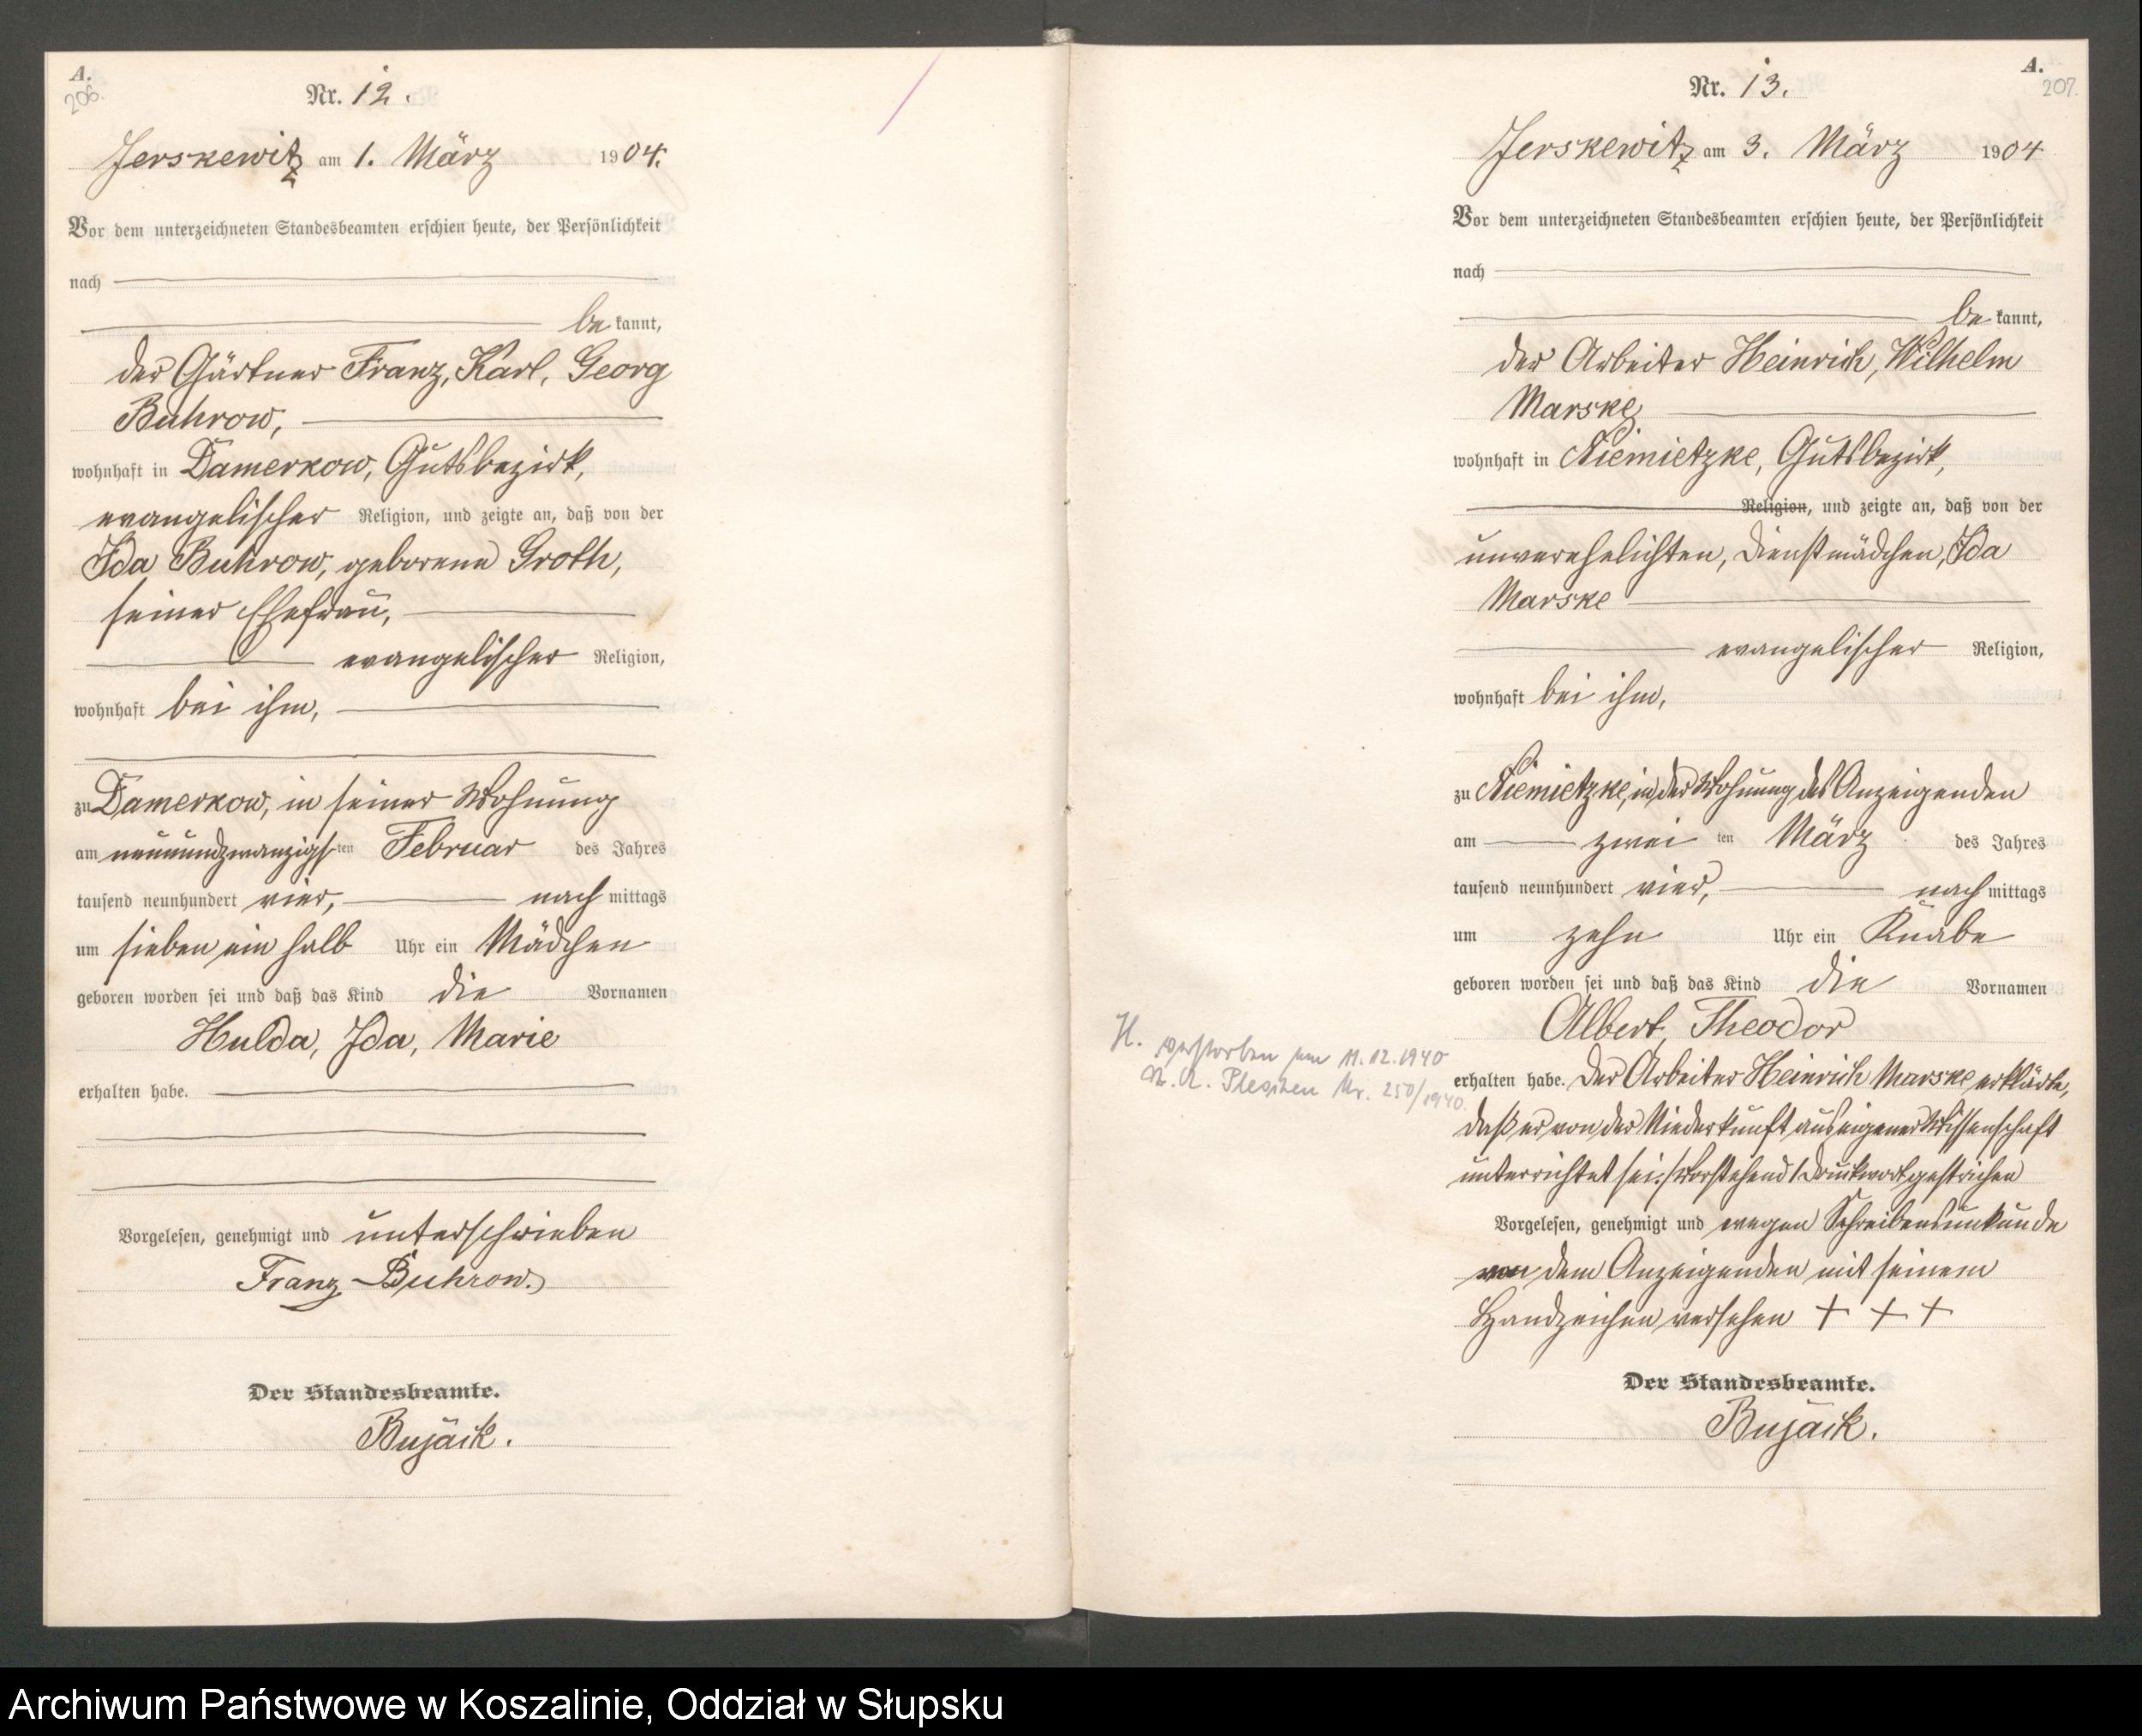 A.
206.
Nr. 12.
Jerskewitz am 1. März 1904.
Vor dem unterzeichneten Standesbeamten erschien heute, der Persönlichkeit
nach
be kannt,
der Gärtner Franz, Karl, Georg
Buhrow,
wohnhaft in Damerkow, Gutsbezirk,
evangelischer Religion, und zeigte an, daß von der
Ida Buhrow, geborene Groth,
seiner Ehefrau,
evangelischer Religion,
wohnhaft bei ihm,
zu Damerkow, in seiner Wohnung
am neunundzwanzigsten Februar des Jahres
tausend neunhundert vier, nach mittags
um sieben ein halb Uhr ein Mädchen
geboren worden sei und daß das Kind die Vornamen
Hulda, Ida, Marie
erhalten habe.
Vorgelesen, genehmigt und unterschrieben
Franz Buhrow.
Der Standesbeamte.
Bujack.
A.
207.
Nr. 13.
Jerskewitz am 3. März 1904
Vor dem unterzeichneten Standesbeamten erschien heute, der Persönlichkeit
nach
be kannt,
der Arbeiter Heinrich, Wilhelm
Marske
wohnhaft in Niemietzke, Gutsbezirk,
Religion, und zeigte an, daß von der
unverehelichten, Dienstmädchen, Ida
Marske
evangelischer Religion,
wohnhaft bei ihm,
zu Niemietzke, in der Wohnung des Anzeigenden
am zwei ten März des Jahres
tausend neunhundert vier, nach mittags
um zehn Uhr ein Knabe
geboren worden sei und daß das Kind die Vornamen
Albert, Theodor
erhalten habe. Der Arbeiter Heinrich Marske erklärte,
daß er von der Niederkunft aus eigener Wissenschaft
unterrichtet sei. Vorstehend 1 Druckwort gestrichen
Vorgelesen, genehmigt und wegen Schreibensunkunde
von dem Anzeigenden mit seinem
Handzeichen versehen + + +
Der Standesbeamte.
Bujack.
H. verstorben am 11.12.1940
Pleschen Nr. 250/1940.
Archiwum Państwowe w Koszalinie, Oddział w Słupsku